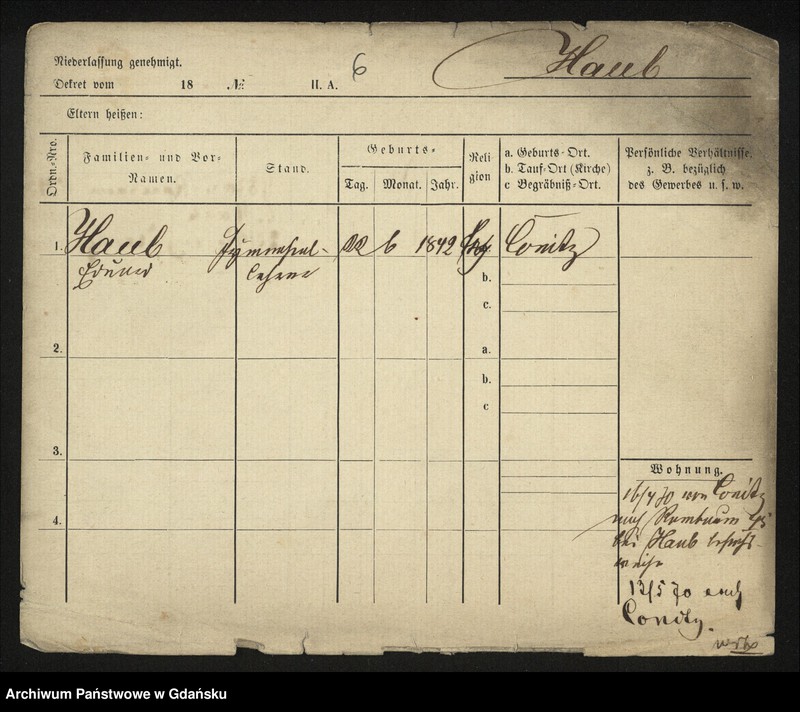 Niederlassung genehmigt.
Dekret vom 18 № II. A. 6
Haub
Eltern heißen:
Ordn.-Nro.
Familien- und Vor-
Namen.
Stand.
Geburts-
Tag. Monat. Jahr.
Reli
gion
a. Geburts-Ort.
b. Tauf-Ort (Kirche)
c Begräbniß-Ort.
Persönliche Verhältnisse.
z. B. bezüglich
des Gewerbes u. s. w.
1. Haub Gymnasial- 22 6 1842 Conitz
Eduard lehrer
b.
c.
2. a.
b.
c
3.
4.
Wohnung.
16/4 70 von Conitz
nach Rambaum 45
bei Haub besuchs-
weise
13/5 70 nach
Conitz.
Archiwum Państwowe w Gdańsku